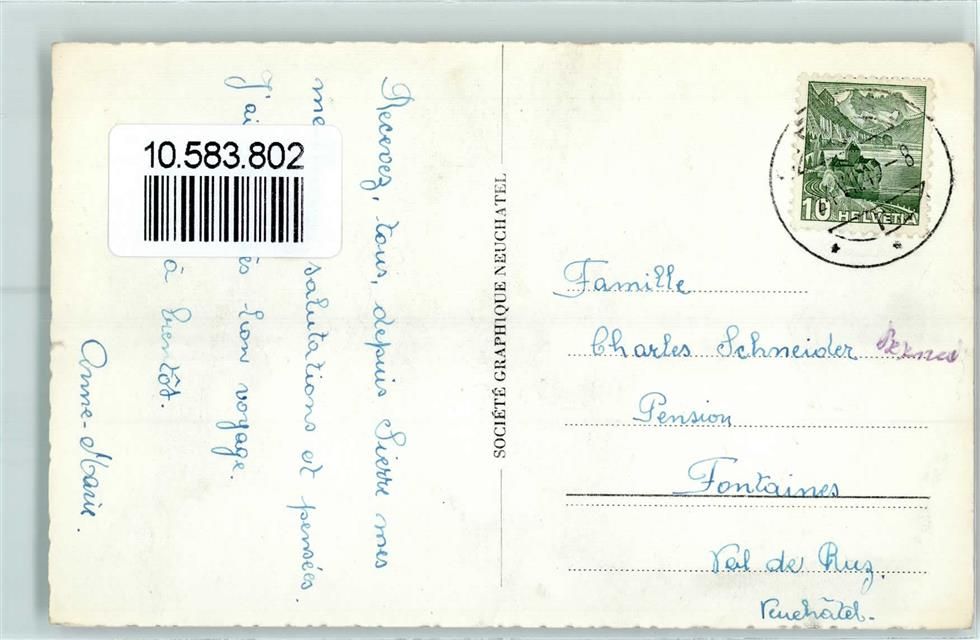 Recevez, tous, depuis Sierre mes
me salutations et pensées.
J'ai ès bon voyage.
à bientôt.
Anne-Marie.
10.583.802
SOCIÉTÉ GRAPHIQUE NEUCHATEL
10 HELVETIA
Famille
Charles Schneider
Pension
Fontaines
Val de Ruz.
Neuchâtel.